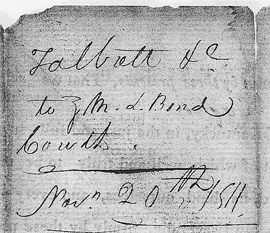 Talbott &c
to } M. L. Bond
Couth.
Novr. 20th 1811